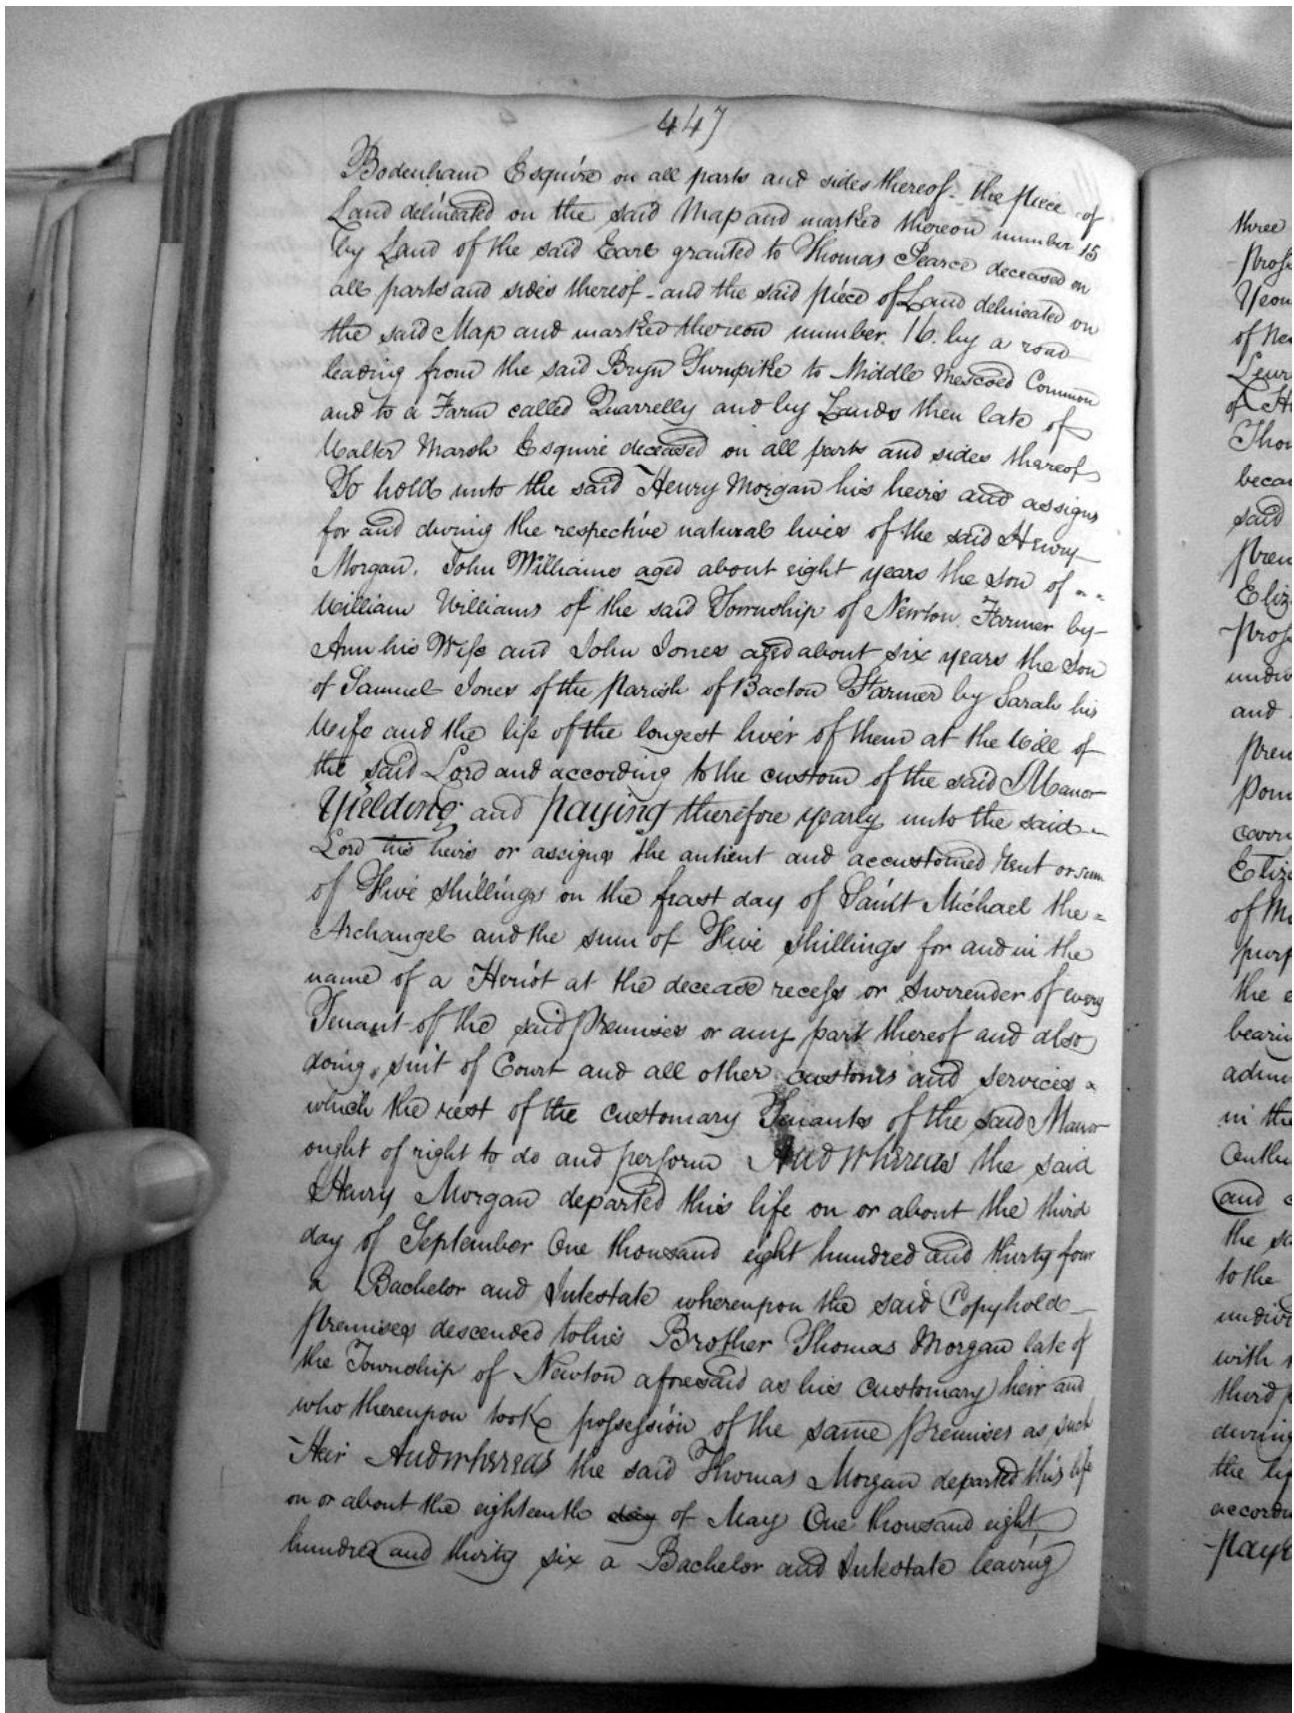 447
Bodenham Esquire on all parts and sides thereof - the piece of
Land delineated on the said Map and marked thereon number 15
by Land of the said Earl granted to Thomas Pearce deceased on
all parts and sides thereof - and the said piece of Land delineated on
the said Map and marked thereon number. 16. by a road
leading from the said Bryn Turnpike to Middle Mescoed Common
and to a Farm called Quarrelly and by Lands then late of
Walter Marsh Esquire deceased on all parts and sides thereof
To hold unto the said Henry Morgan his heirs and assigns
for and during the respective natural lives of the said Henry
Morgan. John Williams aged about eight years the son of
William Williams of the said Township of Newton. Farmer by
Ann his Wife and John Jones aged about six years the son
of Samuel Jones of the Parish of Bacton Farmer by Sarah his
Wife and the life of the longest liver of them at the Will of
the said Lord and according to the custom of the said Manor
Yielding and paying therefore yearly unto the said
Lord his heirs or assigns the antient and accustomed rent or sum
of Five shillings on the feast day of Saint Michael the =
Archangel and the sum of Five shillings for and in the
name of a Heriot at the decease recess or surrender of every
Tenant of the said Premises or any part thereof and also
doing suit of Court and all other customs and services
which the rest of the customary Tenants of the said Manor
ought of right to do and perform And whereas the said
Henry Morgan departed this life on or about the third
day of September One thousand eight hundred and thirty four
a Bachelor and Intestate whereupon the said Copyhold
Premises descended to his Brother Thomas Morgan late of
the Township of Newton aforesaid as his customary heir and
who thereupon took possession of the same Premises as such
Heir And whereas the said Thomas Morgan departed this life
on or about the eighteenth day of May One thousand eight
hundred and thirty six a Bachelor and Intestate leaving
three
Yeom
of
Thom
becam
said
prem
Eliz
and
prem
of
the
in the
and
the
to the
with
third
during
the